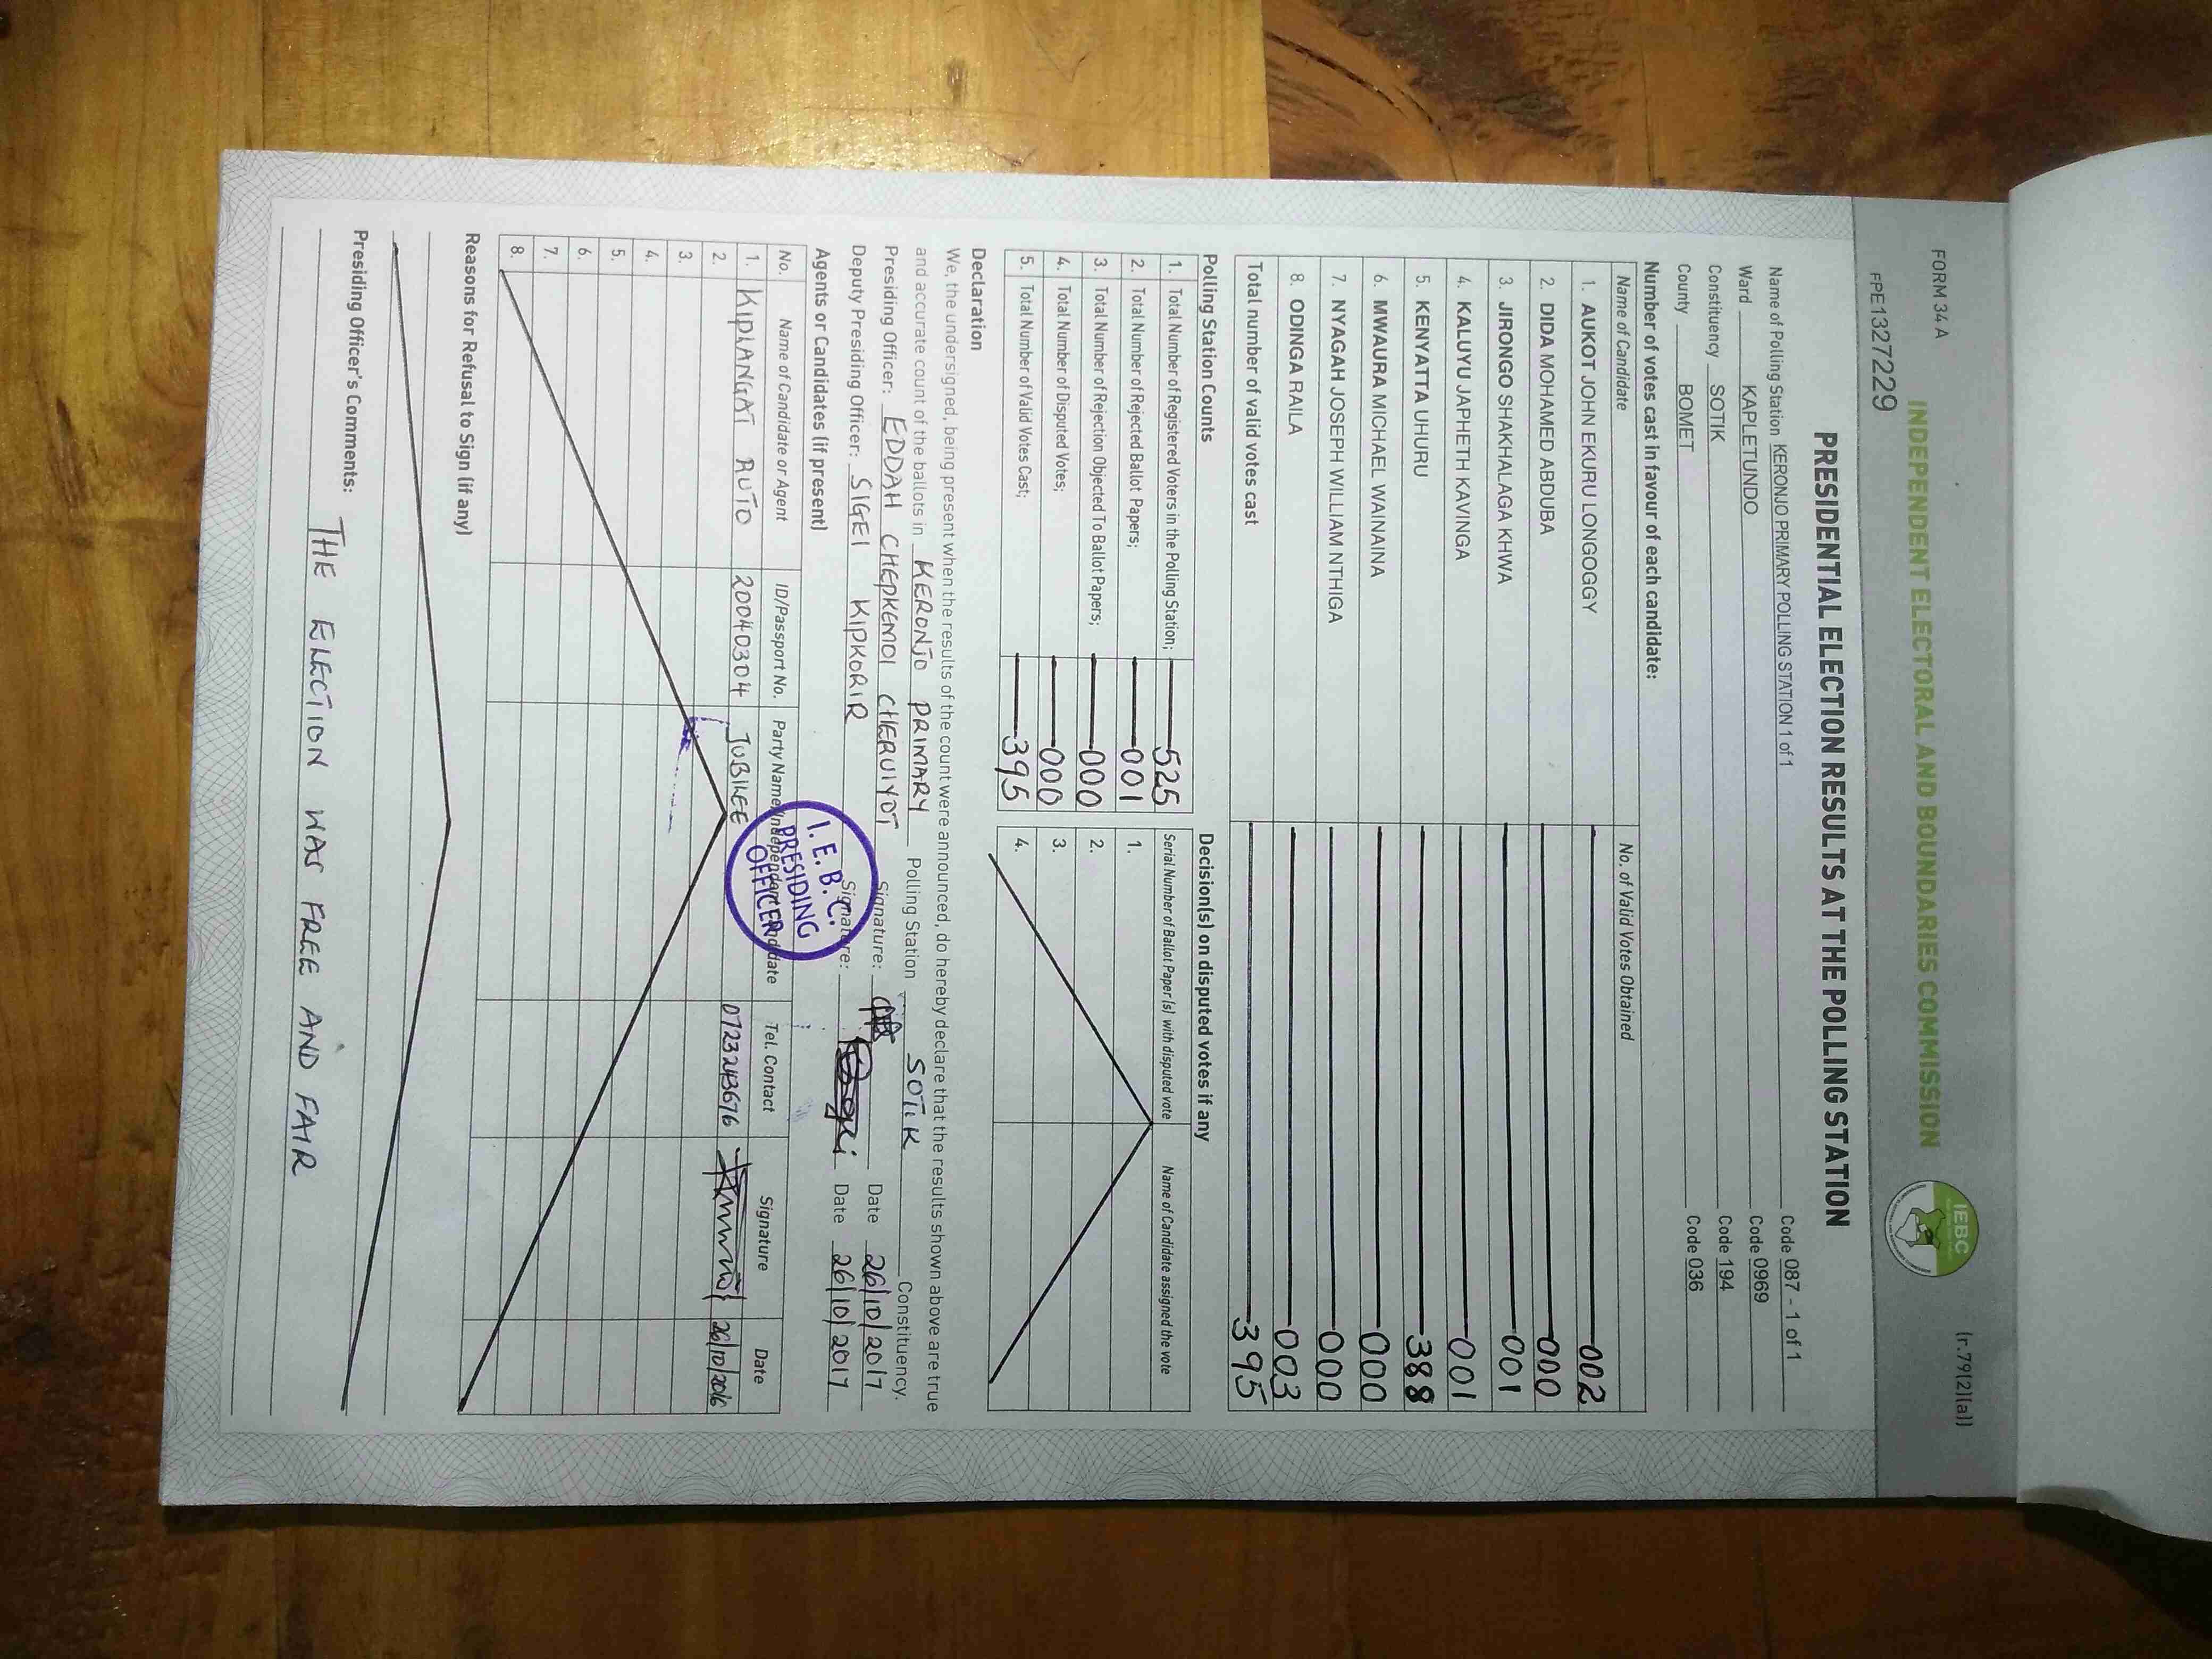 FORM 34 A
(r.79(2)(a))
INDEPENDENT ELECTORAL AND BOUNDARIES COMMISSION
IEBC
PRESIDENTIAL ELECTION RESULTS AT THE POLLING STATION
Name of Polling Station KERONJO PRIMARY POLLING STATION 1 of 1 Code 087 - 1 of 1
Ward KAPLETUNDO Code 0969
Constituency SOTIK Code 194
County BOMET Code 036
Number of votes cast in favour of each candidate:
Name of Candidate No. of Valid Votes Obtained
1. AUKOT JOHN EKURU LONGOGGY 002
2. DIDA MOHAMED ABDUBA 000
3. JIRONGO SHAKHALAGA KHWA 001
4. KALUYU JAPHETH KAVINGA 001
5. KENYATTA UHURU 388
6. MWAURA MICHAEL WAINAINA 000
7. NYAGAH JOSEPH WILLIAM NTHIGA 000
8. ODINGA RAILA 003
Total number of valid votes cast 395
Polling Station Counts
1. Total Number of Registered Voters in the Polling Station; 525
2. Total Number of Rejected Ballot Papers; 001
3. Total Number of Rejection Objected To Ballot Papers; 000
4. Total Number of Disputed Votes; 000
5. Total Number of Valid Votes Cast; 395
Decision(s) on disputed votes if any
Serial Number of Ballot Paper (s) with disputed vote Name of Candidate assigned the vote
1.
2.
3.
4.
Declaration
We, the undersigned, being present when the results of the count were announced, do hereby declare that the results shown above are true
and accurate count of the ballots in KERONJO PRIMARY Polling Station SOTIK Constituency.
Presiding Officer: EDDAH CHEPKEMOI CHERUIYOT Signature: Date 26/10/2017
Deputy Presiding Officer: SIGEI KIPKORIR Signature: Date 26/10/2017
I. E. B. C.
PRESIDING
OFFICER
Agents or Candidates (if present)
No. Name of Candidate or Agent ID/Passport No. Party Name/Independent Candidate Tel. Contact Signature Date
1. KIPLANGAT RUTO 20040304 JUBILEE
2.
3.
4.
5.
6.
7.
8.
Reasons for Refusal to Sign (if any)
Presiding Officer's Comments: THE ELECTION WAS FREE AND FAIR